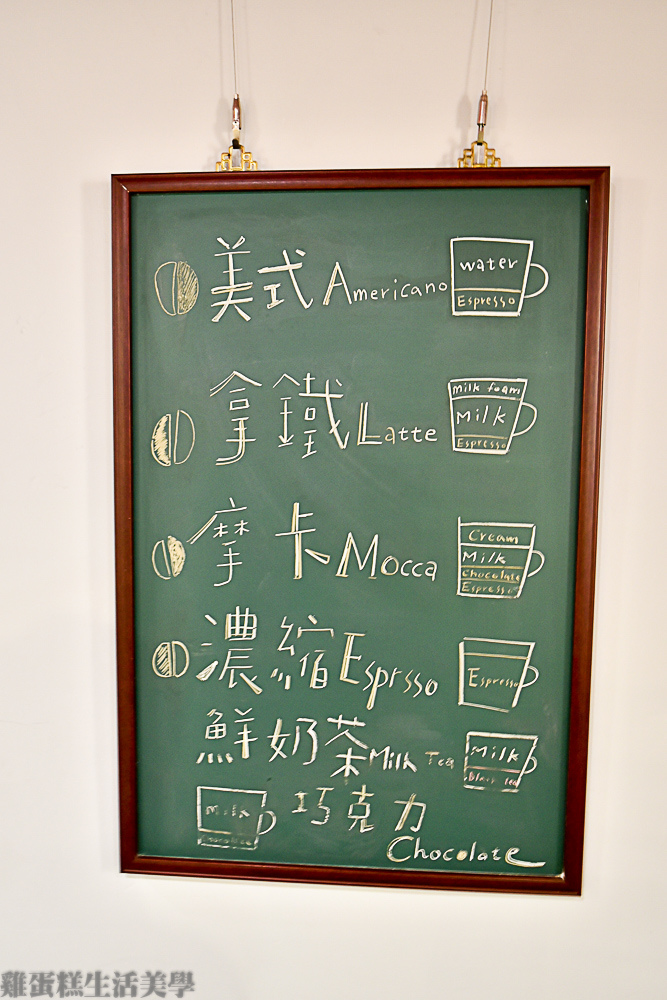 美式 Americano
water
Espresso
拿鐵 Latte
Milk foam
Milk
Espresso
摩卡 Mocca
Cream
Milk
Chocolate
Espresso
濃縮 Esprsso
Espresso
鮮奶茶 Milk Tea
Milk
Black tea
Milk
Chocolate
巧克力
Chocolate
雞蛋糕生活美學